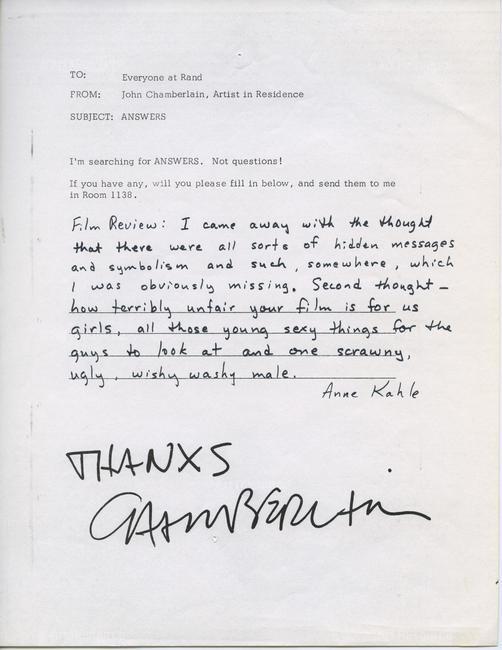 TO: Everyone at Rand
FROM: John Chamberlain, Artist in Residence
SUBJECT: ANSWERS
I'm searching for ANSWERS. Not questions!
If you have any, will you please fill in below, and send them to me
in Room 1138.
Film Review: I came away with the thought
that there were all sorts of hidden messages
and symbolism and such, somewhere, which
I was obviously missing. Second thought –
how terribly unfair your film is for us
girls, all those young sexy things for the
guys to look at and one scrawny,
ugly, wishy washy male.
Anne Kahle
THANXS
CHAMBERLAIN